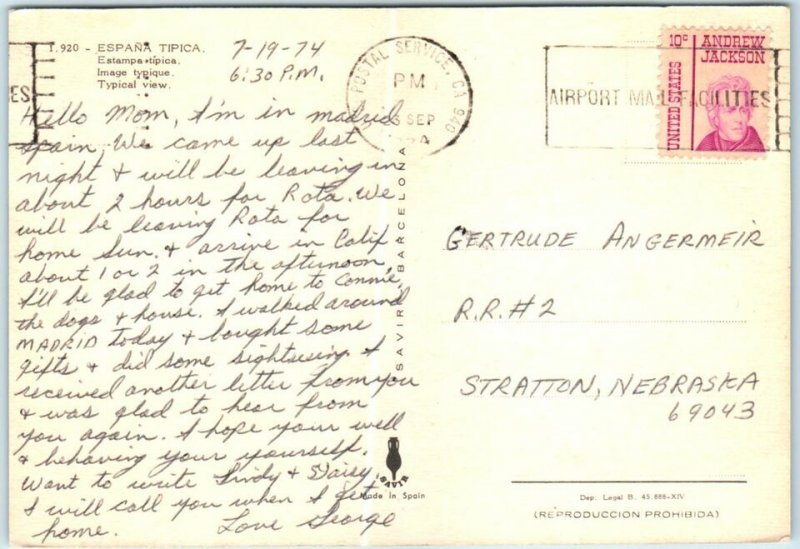 1.920 - ESPAÑA TIPICA.
Estampa típica.
Image typique.
Typical view.
7-19-74
6:30 P.M.
Hello Mom, I'm in madrid
Spain. We came up last
night & will be leaving in
about 2 hours for Rota. We
will be leaving Rota for
home Sun. & arrive in Calif
about 1 or 2 in the afternoon,
I'll be glad to get home to Connie,
the dogs & house. I walked around
MADRID today & bought some
gifts & did some sightseeing. I
received another letter from you
& was glad to hear from
you again. I hope your well
& behaving your yourself.
Want to write Lindy & Daisy,
I will call you when I get
home. Love George
POSTAL SERVICE, CA 940
PM
SEP
AIRPORT MAIL FACILITIES
ES
10c ANDREW
JACKSON
UNITED STATES
SAVIR BARCELONA
GERTRUDE ANGERMEIR
R.R. #2
STRATTON, NEBRASKA
69043
SAVIR
Made in Spain
Dep. Legal B. 45.888-XIV
(REPRODUCCION PROHIBIDA)